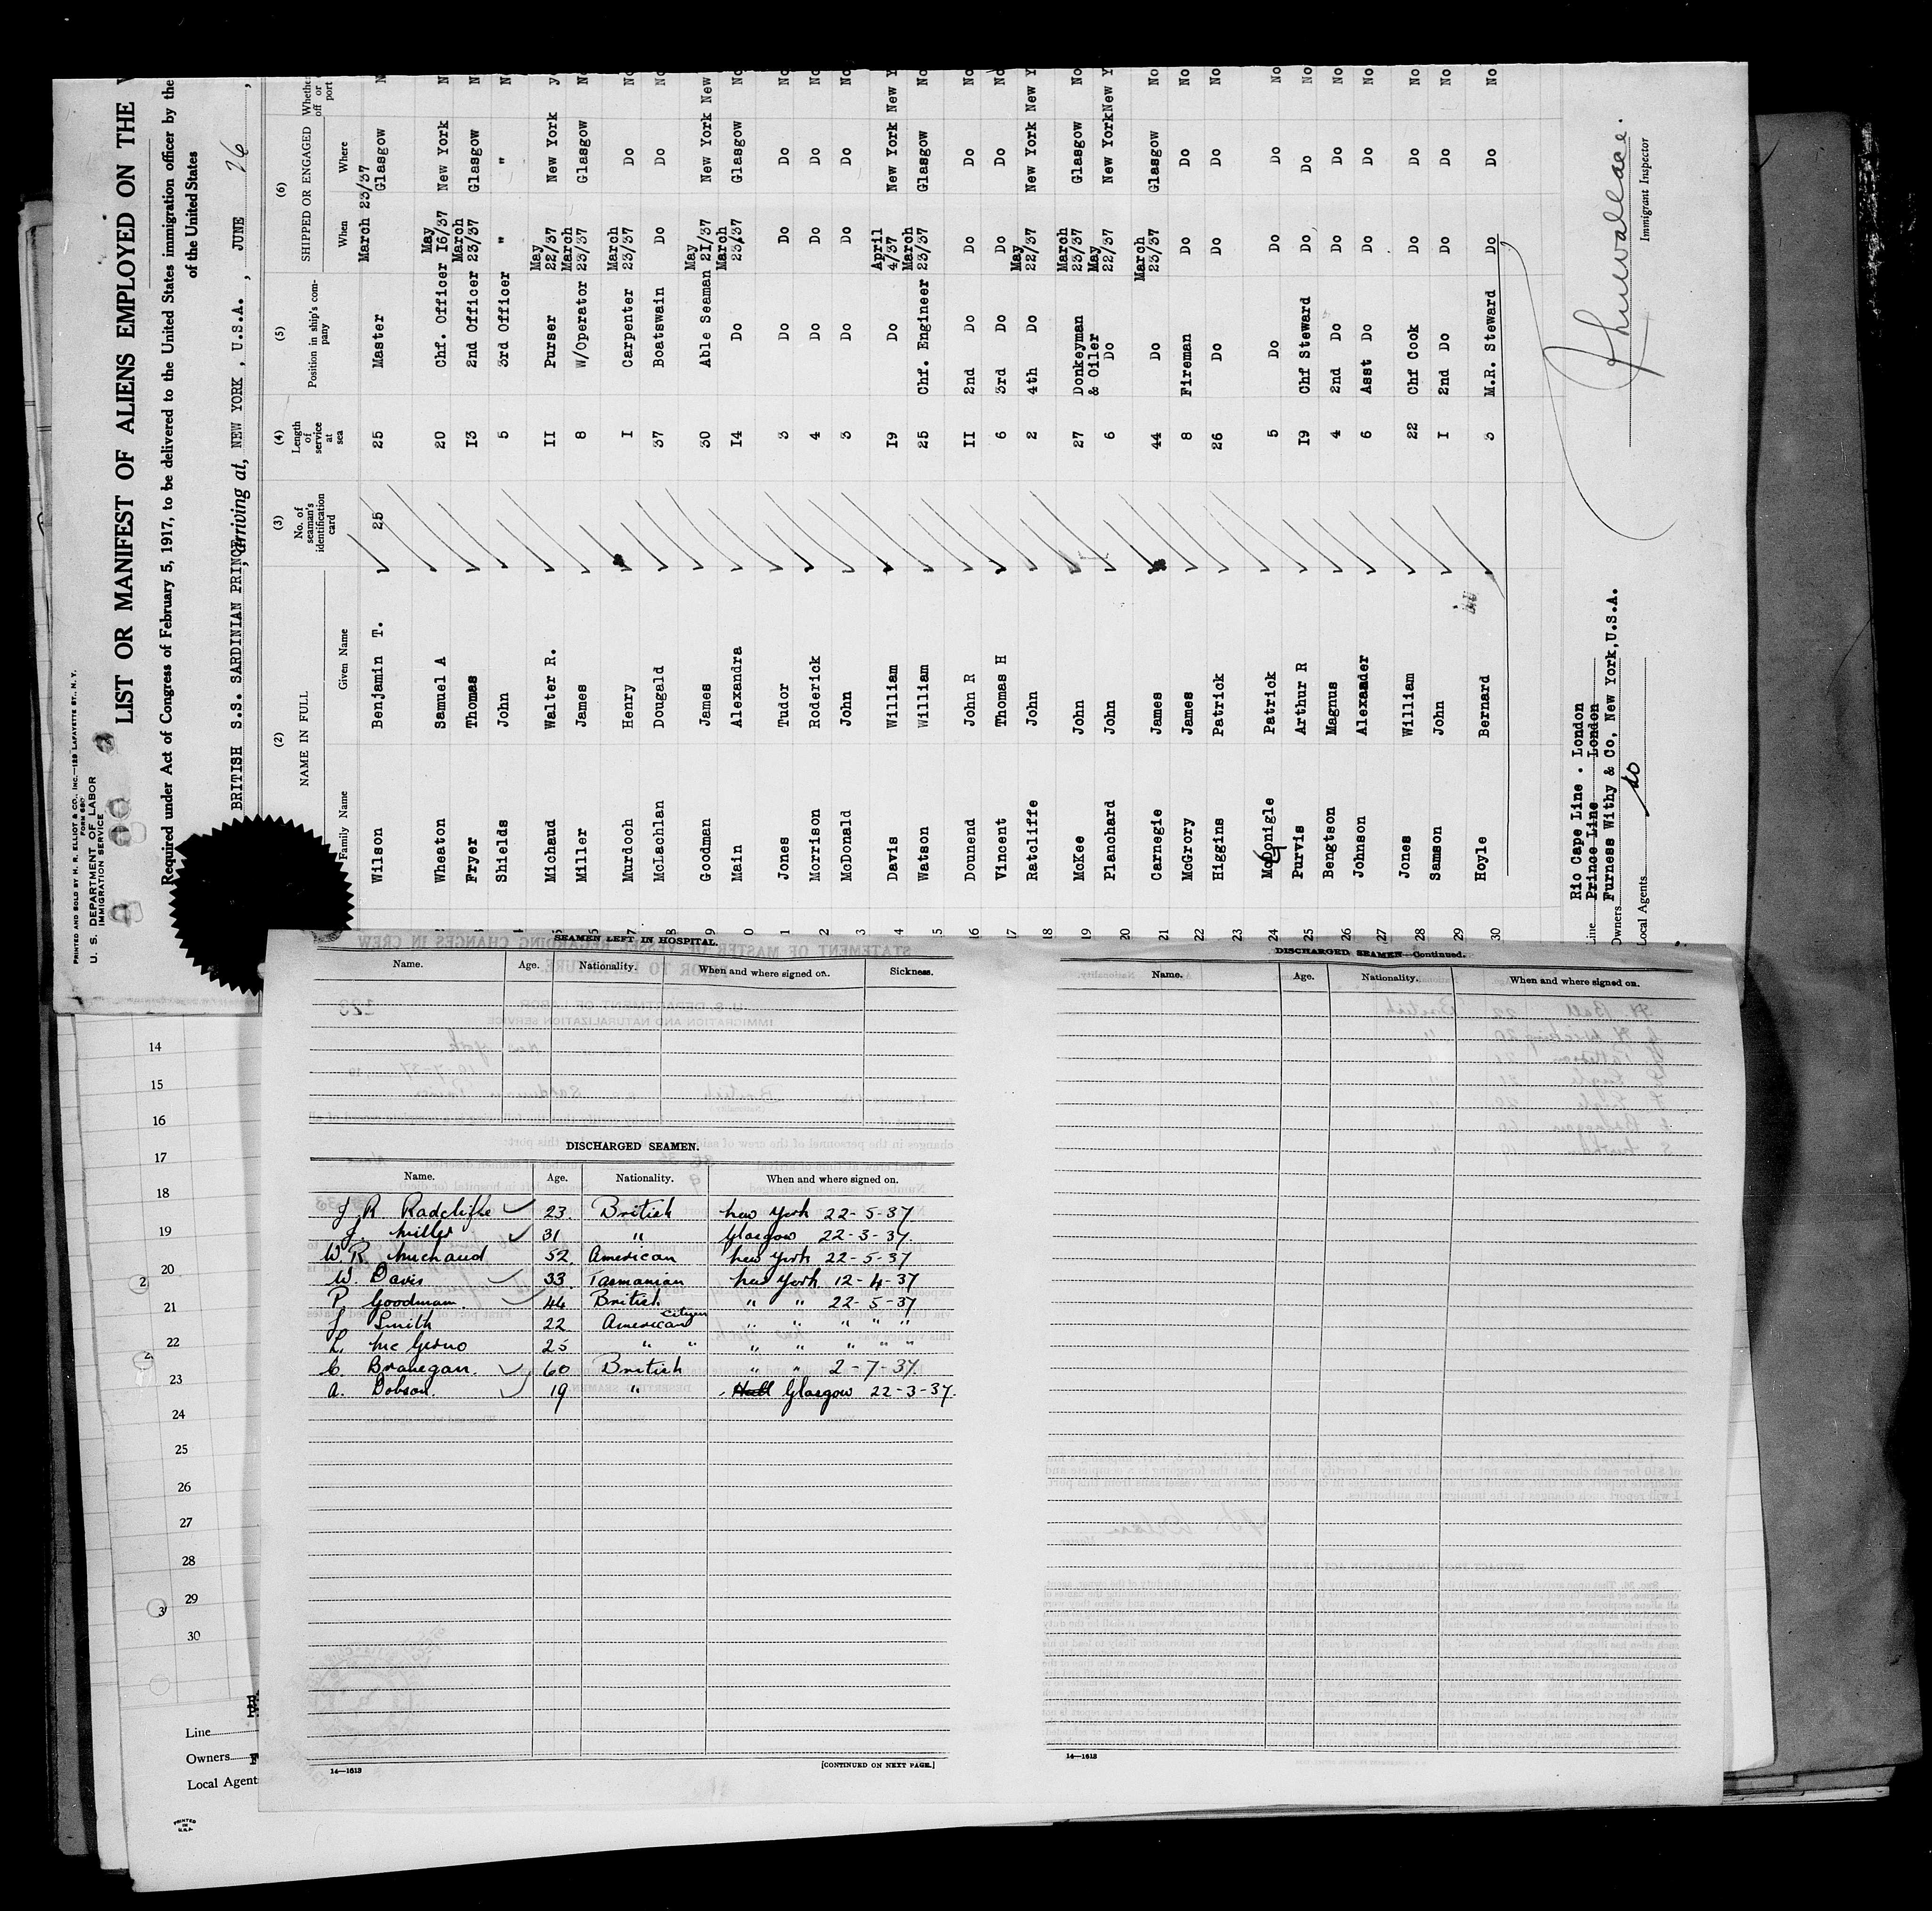 PRINTED AND SOLD BY H. R. ELLIOT & CO., INC.—129 LAFAYETTE ST., N. Y.
FORM 680
U. S. DEPARTMENT OF LABOR
IMMIGRATION SERVICE
LIST OR MANIFEST OF ALIENS EMPLOYED ON THE
Required under Act of Congress of February 5, 1917, to be delivered to the United States immigration officer by the
of the United States
BRITISH S.S. SARDINIAN PRINCE, arriving at, NEW YORK , U.S.A. , JUNE 26 ,
(2) (3) (4) (5) (6)
NAME IN FULL No. of seaman's identification card Length of service at sea Position in ship's company SHIPPED OR ENGAGED
Family Name Given Name When Where
Wilson Benjamin T. 25 25 Master March 23/37 Glasgow
Wheaton Samuel A 20 Chf. Officer May 16/37 New York
Fryer Thomas 13 2nd Officer March 23/37 Glasgow
Shields John 5 3rd Officer " "
Michaud Walter R. 11 Purser May 22/37 New York
Miller James 8 W/Operator March 23/37 Glasgow
Murdoch Henry 1 Carpenter March 23/37 Do No
McLachlan Dougald 37 Boatswain Do Do No
Goodman James 30 Able Seaman May 21/37 New York New
Main Alexandra 14 Do March 23/37 Glasgow No
Jones Tudor 3 Do Do Do No
Morrison Roderick 4 Do Do Do No
McDonald John 3 Do Do Do No
Davis William 19 Do April 4/37 New York New Y
Watson William 25 Chf. Engineer March 23/37 Glasgow No
Dounend John R 11 2nd Do Do Do No
Vincent Thomas H 6 3rd Do Do Do No
Ratcliffe John 2 4th Do May 22/37 New York New Y
McKee John 27 Donkeyman & Oiler March 23/37 Glasgow No
Planchard John 6 Do May 22/37 New York New Y
Carnegie James 44 Do March 23/37 Glasgow No
McGrory James 8 Fireman Do Do No
Higgins Patrick 26 Do Do Do No
McGonigle Patrick 5 Do Do Do No
Purvis Arthur R 19 Chf Steward Do Do No
Bengtson Magnus 4 2nd Do Do Do No
Johnson Alexander 6 Asst Do Do Do No
Jones William 22 Chf Cook Do Do No
Samson John 1 2nd Do Do Do No
Hoyle Bernard 3 M.R. Steward Do Do No
Rio Cape Line . London
Line Prince Line London
Owners Furness Withy & Co, New York, U.S.A.
Local Agents do
Immigrant Inspector
SEAMEN LEFT IN HOSPITAL.
Name. Age. Nationality. When and where signed on. Sickness.
DISCHARGED SEAMEN.
Name. Age. Nationality. When and where signed on.
J R Radcliffe 23. British New York 22-5-37
J. Miller 31 " Glasgow 22-3-37.
W. R. Michaud 52. American New York 22-5-37
W. Davis 33. Tasmanian New York 12-4-37
P. Goodman. 44 British " " 22-5-37
J Smith 22 American citizen " " " " "
25 " " " " " " "
C. Branegan. 60 British " " 2-7-37.
A. Dobson. 19 " Hull Glasgow 22-3-37.
14—1613
[CONTINUED ON NEXT PAGE.]
DISCHARGED SEAMEN—Continued.
Name. Age. Nationality. When and where signed on.
14—1613
14
15
16
17
18
19
20
21
22
23
24
25
26
27
28
29
30
Line
Owners
Local Agent
PRINTED IN U.S.A.